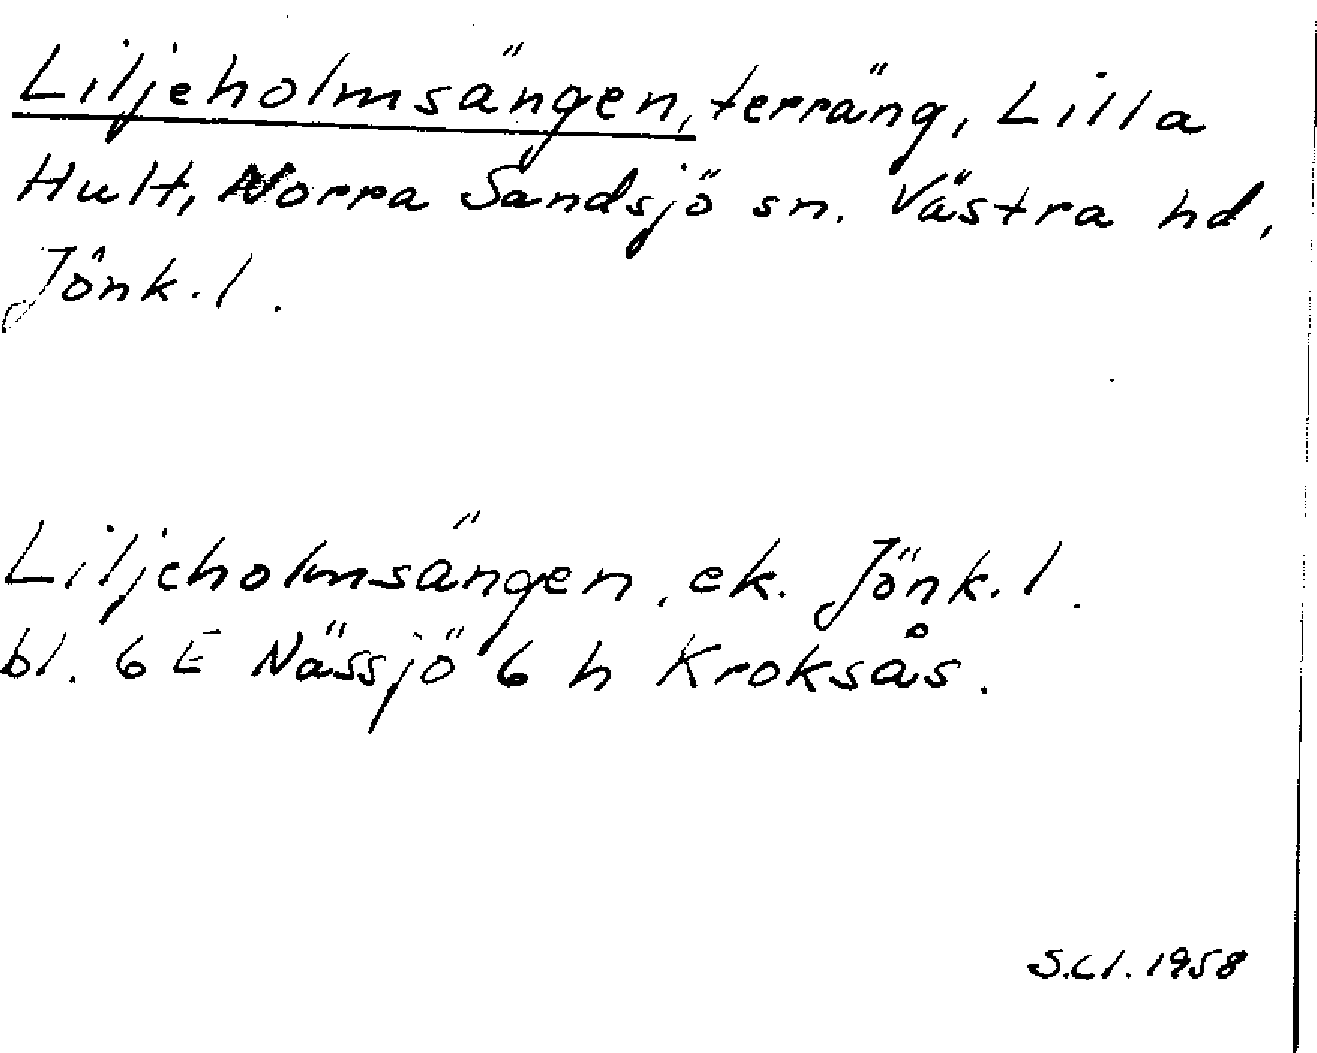 Liljeholmsängen, terräng, Lilla
Hult, Norra Sandsjö sn. Västra hd,
Jönk. l.
Liljeholmsängen, ek. Jönk. l.
bl. 6 E Nässjö 6 h Kroksås.
S.Cl. 1958